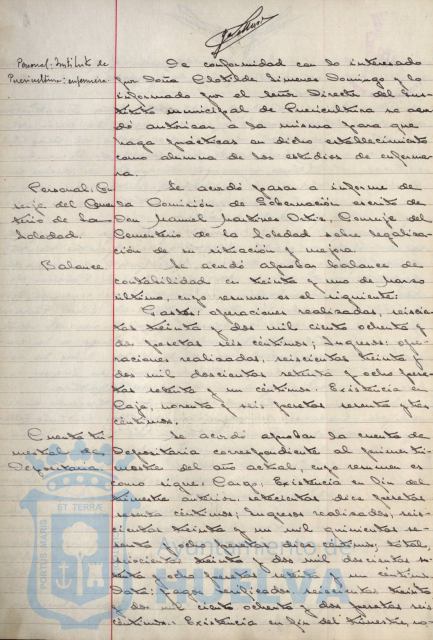 Personal: Instituto de
Puericultura: enfermera.
De conformidad con lo interesado
por Doña Clotilde Jimenez Domingo y lo
informado por el señor Director del Ins-
tituto municipal de Puericultura se acor-
dó autorizar a la misma para que
haga prácticas en dicho establecimiento
como alumna de los estudios de enferme-
ra.
Personal: Con-
serje del Cemen-
terio de la
Soledad.
Se acordó pasar a informe de
la Comisión de Gobernación escrito de
Don Manuel Martinez Ortiz, Conserje del
Cementerio de la Soledad sobre legaliza-
ción de su situación y mejora.
Balance
Se acordó aprobar balance de
contabilidad en treinta y uno de Marzo
último, cuyo resumen es el siguiente:
Gastos: operaciones realizadas, seiscien-
tas treinta y dos mil ciento ochenta y
dos pesetas seis céntimos; Ingresos: ope-
raciones realizadas, seiscientas treinta y
dos mil doscientas setenta y ocho pese-
tas setenta y un céntimos. Existencia en
Caja, noventa y seis pesetas sesenta y
céntimos.
Cuenta tri-
mestral de
Depositaria.
Se acordó aprobar la cuenta de
Depositaria correspondiente al primer tri-
mestre del año actual, cuyo resumen es
como sigue: Cargo, Existencia en fin del
trimestre anterior, setecientas diez pesetas
céntimos; Ingresos realizados, seis-
cientas treinta y un mil quinientas se-
senta y ocho pesetas céntimos, total,
seiscientas treinta y dos mil doscientas se-
tenta y ocho pesetas setenta y un céntimos.
Data: pagos verificados, seiscientas treinta
y dos mil ciento ochenta y dos pesetas seis
céntimos. Existencia en fin del trimestre, no-
PORTUS MARIS
ET TERRÆ
Ayuntamiento de
HUELVA